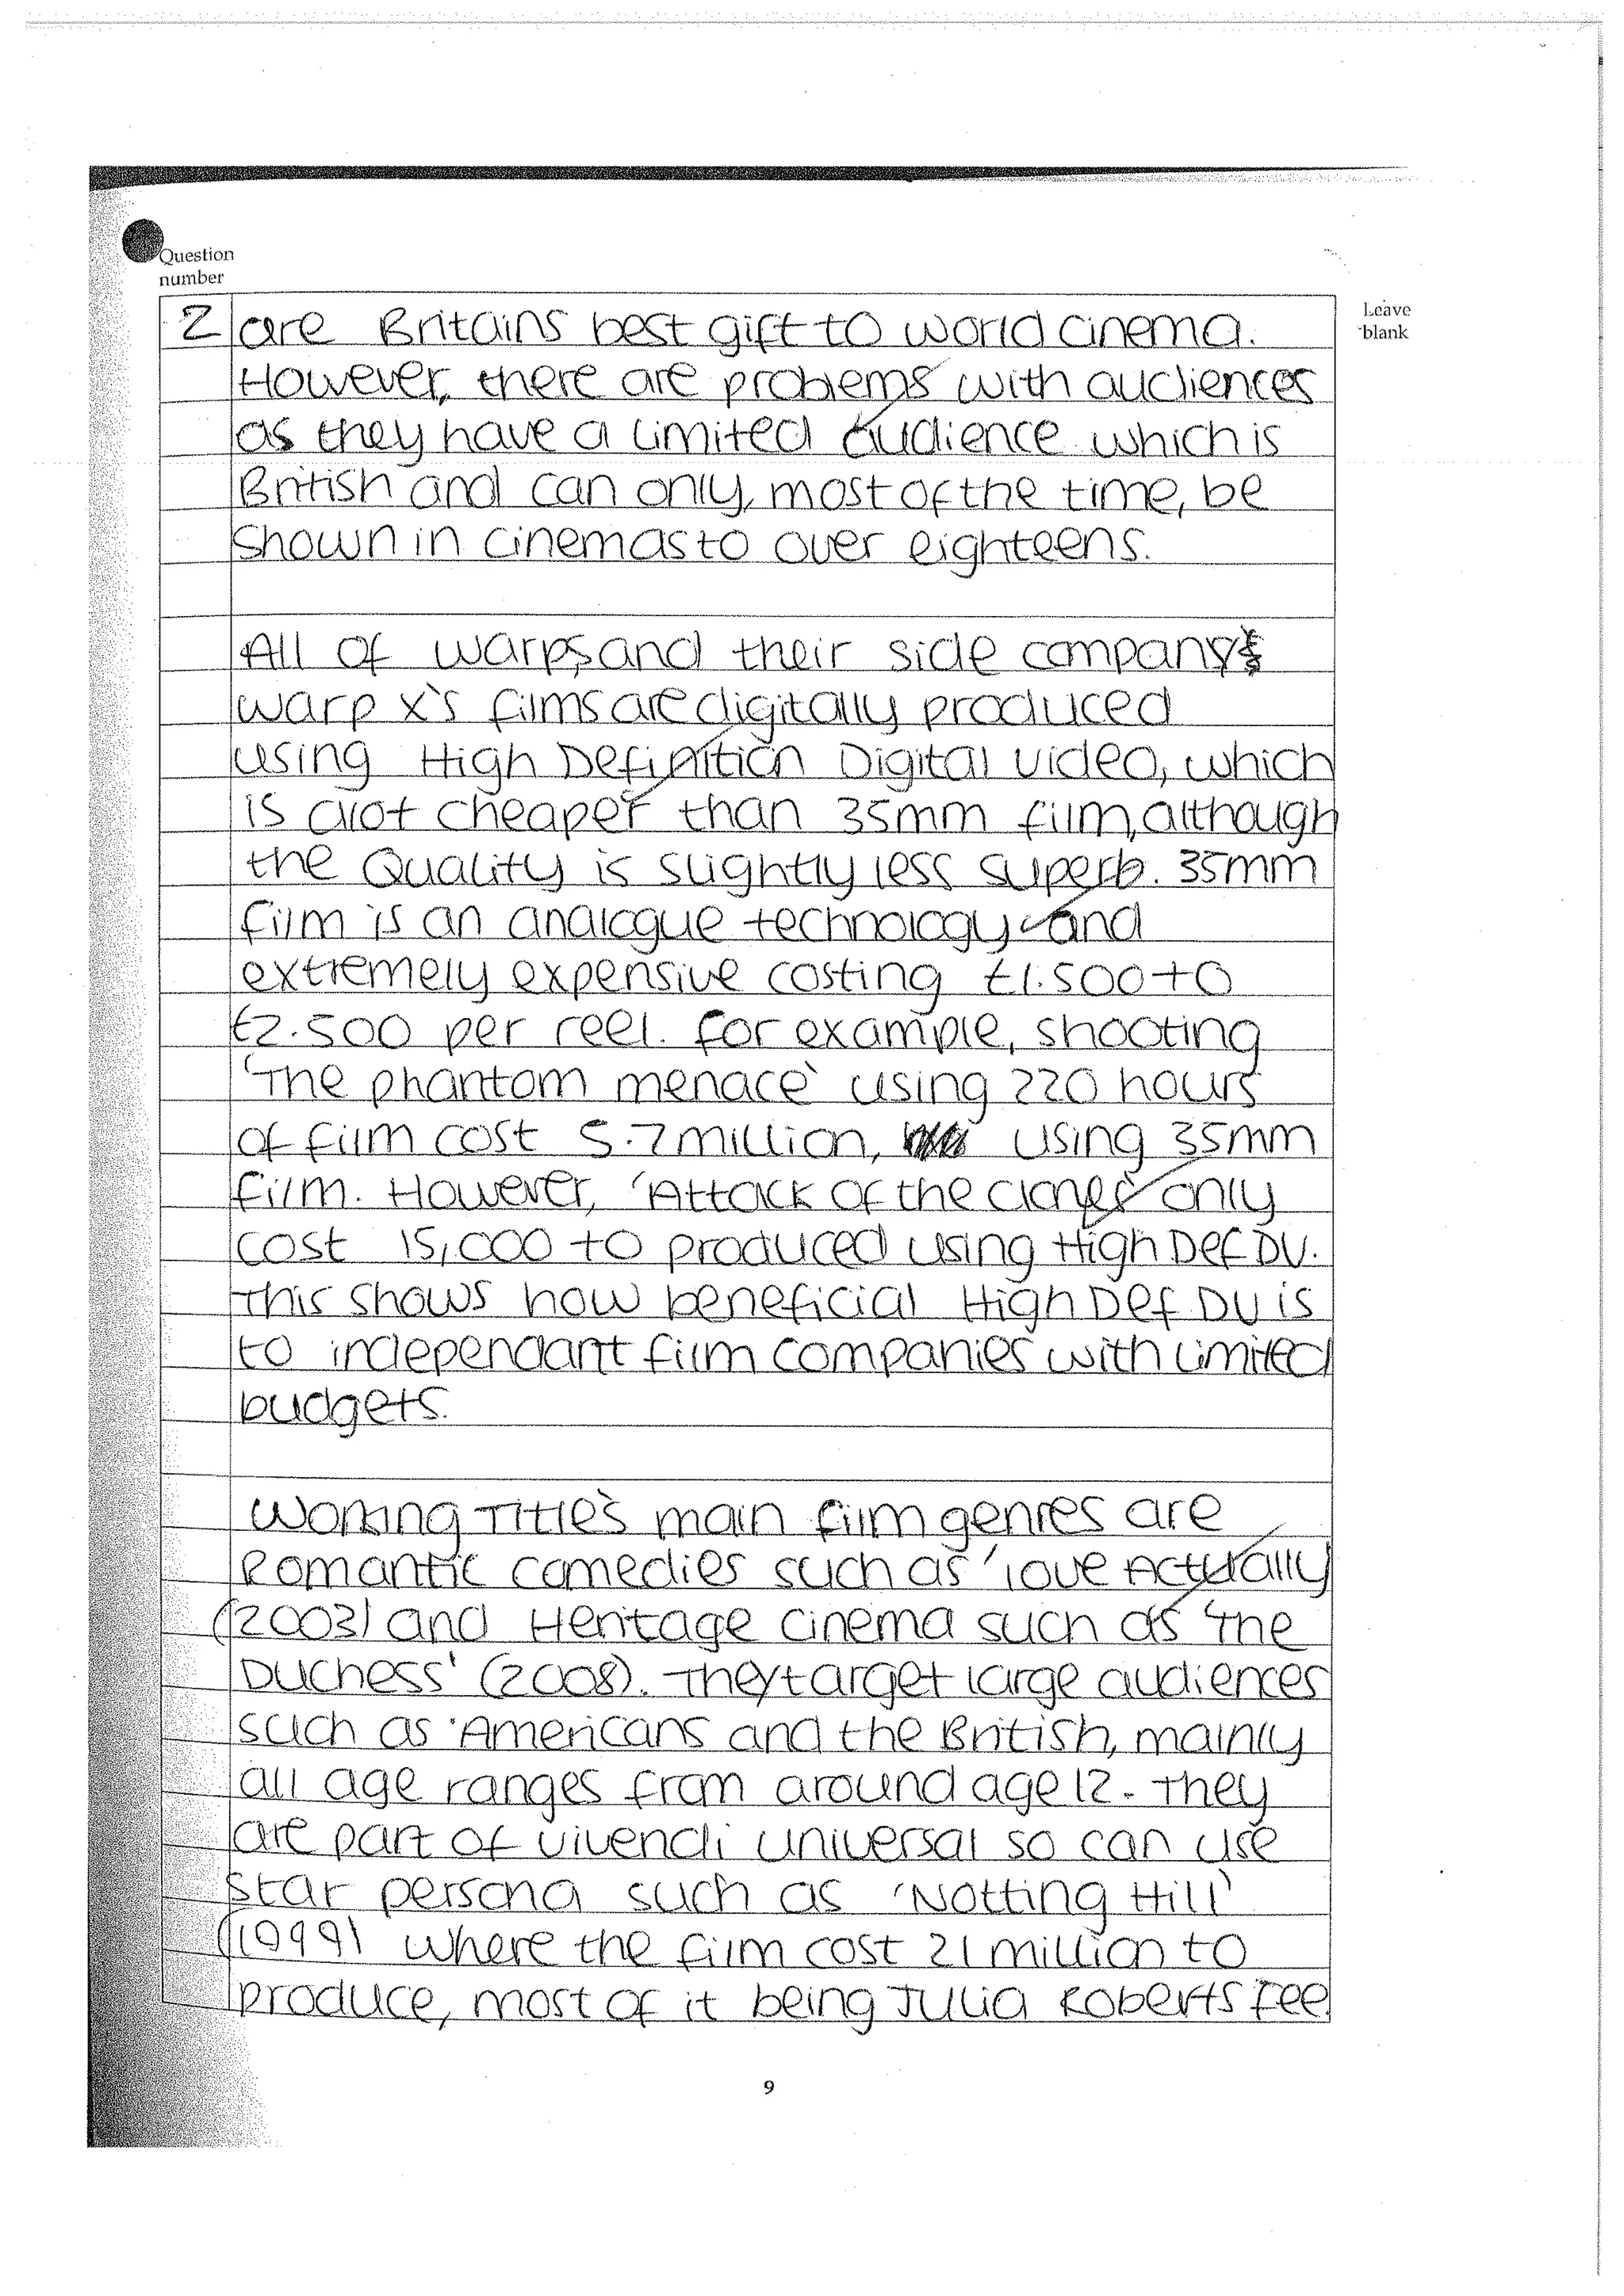 Question
number
Leave
blank
2 are Britains best gift to world cinema.
However, there are problems with audiences
as they have a limited audience which is
British and can only, most of the time, be
shown in cinemas to over eighteens.
All of Warps, and their side company
Warp X's films are digitally produced
using High Definition Digital Video, which
is alot cheaper than 35mm film, although
the Quality is slightly less superb. 35mm
film is an analogue technology and
extremely expensive costing £1.500 to
£2.500 per reel. For example, shooting
'The phantom menace' using 220 hours
of film cost 5.7 million, using 35mm
film. However, 'Attack of the clones' only
cost 15,000 to produced using High Def DV.
This shows how beneficial High Def DV is
to independant film companies with limited
budgets.
Working Title's main film genres are
Romantic comedies such as 'love Actually
(2003) and Heritage cinema such as 'The
Duchess' (2008). They target large audiences
such as Americans and the British, mainly
all age ranges from around age 12. They
are part of vivendi universal so can use
star persona such as 'Notting Hill'
(1999) where the film cost 21 million to
produce, most of it being Julia Roberts fee
9